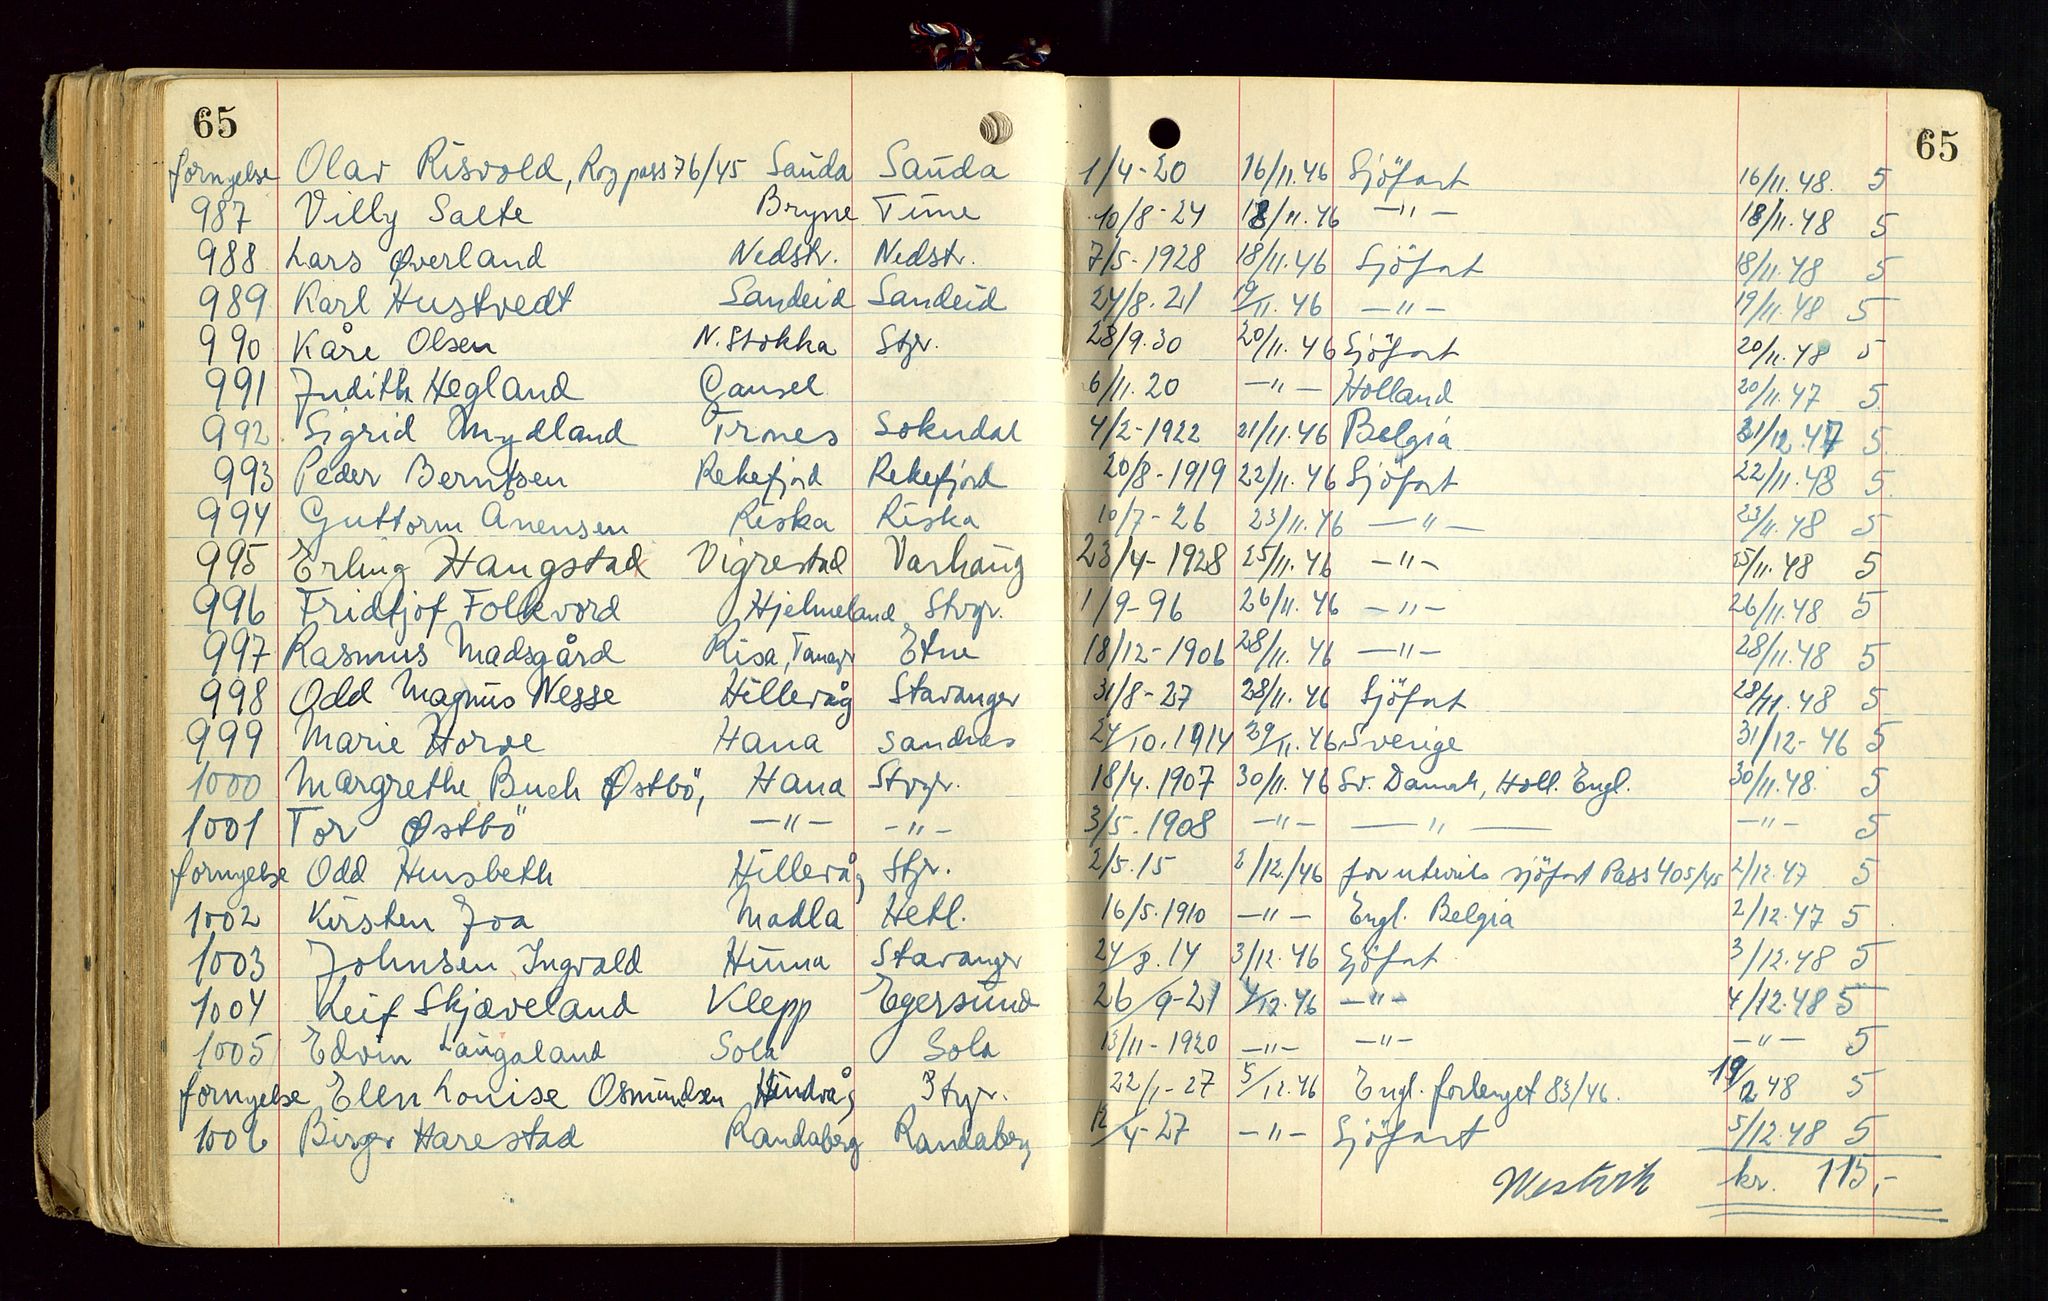 65 65
fornyelse Olav Risvold, Rog pass 76/45 Sauda Sauda 1/4-20 16/11.46 Sjöfart 16/11.48. 5
987 Villy Salte Bryne Time 10/8-24 18/11.46 —"— 18/11.48 5
988 Lars Øverland Nedstr. Nedstr. 7/5-1928 18/11.46 Sjöfart 18/11.48 5
989 Karl Hustvedt Sandeid Sandeid 24/8.21 19/11.46 —"— 19/11.48 5
990 Kåre Olsen N. Stokka Stgr. 28/9.30 20/11.46 Sjöfart 20/11.48 5
991 Judith Hegland Gausel 6/11.20 —"— Holland 20/11.47 5
992 Sigrid Mydland Trones Sokndal 4/2-1922 21/11.46 Belgia 31/12.47 5
993 Peder Berntsen Rekefjord Rekefjord 20/8-1919 22/11.46 Sjöfart 22/11.48 5
994 Guttorm Anensen Riska Riska 10/7-26 23/11.46 —"— 23/11.48 5
995 Erling Haugstad Vigrestad Varhaug 23/4-1928 25/11.46 —"— 25/11.48 5
996 Fridtjof Folkvord Hjelmeland Stvgr. 1/9-96 26/11.46 —"— 26/11.48 5
997 Rasmus Madsgård Risa, Etne 18/12-1906 28/11.46 —"— 28/11.48 5
998 Odd Magnus Nesse Hillevåg Stavanger 31/8-27 28/11.46 Sjöfart 28/11.48 5
999 Marie Horve Hana Sandnes 24/10.1914 29/11.46 Sverige 31/12-46 5
1000 Margrethe Buch Østbö, Hana Stvgr. 18/4.1907 30/11.46 Sv. Danmk, Holl. Engl. 30/11.48. 5
1001 Tor Østbö —"— —"— 3/5.1908 —"— —"— —"— 5
fornyelse Odd Husbeth Hillevåg Stgr. 2/5.15 2/12./46 for utenriks sjöfart Pass 405/45 2/12.47 5
1002 Kirsten Joa Madla Hetl. 16/5.1910 —"— Engl. Belgia 2/12.47 5
1003 Johnsen Ingvald Hinna Stavanger 24/8.14 3/12.46 Sjöfart 3/12.48 5
1004 Leif Skjæveland Klepp Egersund 26/9-21 4/12.46 —"— 4/12.48 5
1005 Edvin Laugaland Sola Sola 13/11-1920 —"— —"— —"— 5
fornyelse Ellen Louise Osmundsen Hundvåg Stgr. 22/1-27 5/12.46 Engl. forlenget 83/46. 19/2 48 5
1006 Birger Harestad Randaberg Randaberg 12/4-27 —"— Sjöfart 5/12.48 5
kr. 115,-